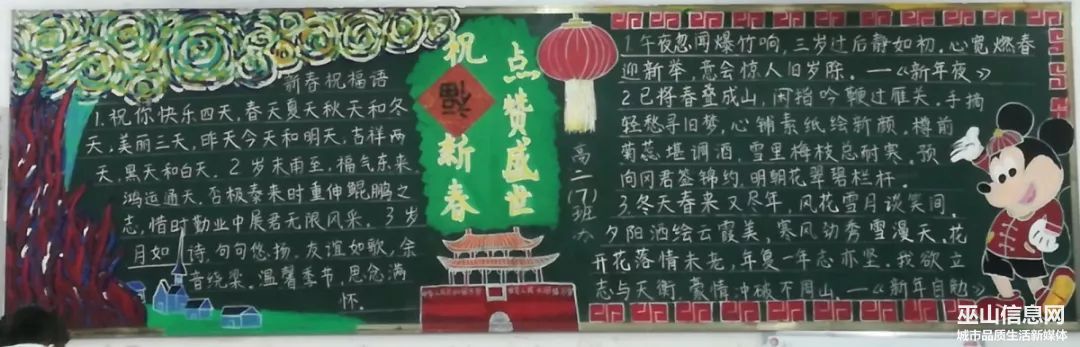 新春祝福语
1.祝你快乐四天,春天夏天秋天和冬
天,美丽三天,昨天今天和明天,吉祥两
天,黑天和白天。2岁末甫至,福气东来,
鸿运通天。否极泰来时重伸鲲鹏之
志,惜时勤业中展君无限风采。3岁
月如诗,句句悠扬,友谊如歌,余
音绕梁。温馨季节,思念满
怀。
祝福新春
点赞盛世
高二(7)班办
1.午夜忽闻爆竹响,三岁过后静如初,心宽燃春
迎新举,意会惊人旧岁除。——《新年夜》
2.已将春叠成山,闲指吟鞭过雁关。手摘
轻愁寻旧梦,心铺素纸绘新颜。樽前
菊蕊堪调酒,雪里梅枝总耐寒。预
向冈君签锦约,明朝花翠碧栏杆。
3.冬天春来又尽年,风花雪月谈笑间。
夕阳洒绘云霞美,寒风劲秀雪漫天。花
开花落情未老,年复一年志亦坚。我欲立
志与天衡,豪情冲破不周山。——《新年自勉》
巫山信息网
城市品质生活新媒体